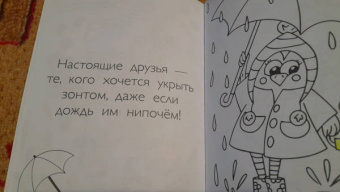 Настоящие друзья —
те, кого хочется укрыть
зонтом, даже если
дождь им нипочём!